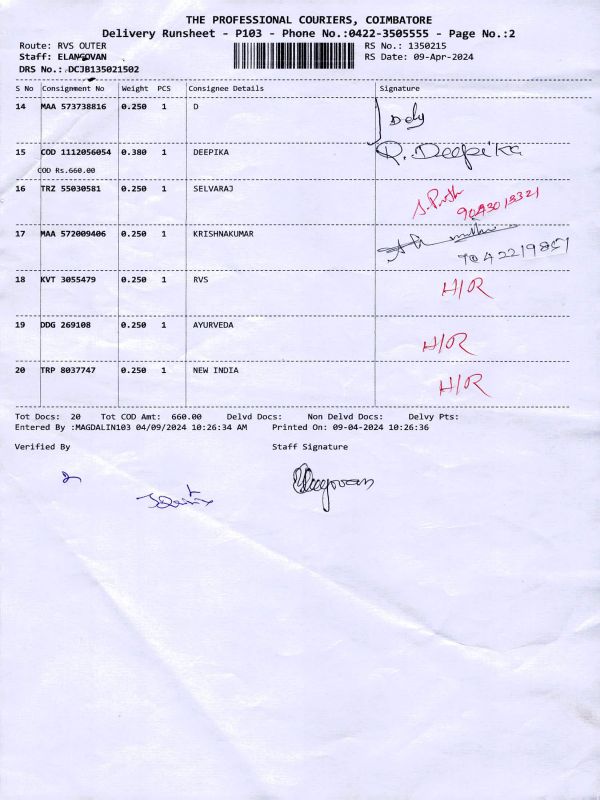 THE PROFESSIONAL COURIERS, COIMBATORE
Delivery Runsheet - P103 - Phone No.:0422-3505555 - Page No.:2
Route: RVS OUTER RS No.: 1350215
Staff: ELANGOVAN RS Date: 09-Apr-2024
DRS No.: DCJB135021502
S No Consignment No Weight PCS Consignee Details Signature
14 MAA 573738816 0.250 1 D Dely
15 COD 1112056054 0.380 1 DEEPIKA R. Deepika
COD Rs.660.00
16 TRZ 55030581 0.250 1 SELVARAJ
17 MAA 572009406 0.250 1 KRISHNAKUMAR
18 KVT 3055479 0.250 1 RVS H/OR
19 DDG 269108 0.250 1 AYURVEDA H/OR
20 TRP 8037747 0.250 1 NEW INDIA H/OR
Tot Docs: 20 Tot COD Amt: 660.00 Delvd Docs: Non Delvd Docs: Delvy Pts:
Entered By :MAGDALIN103 04/09/2024 10:26:34 AM Printed On: 09-04-2024 10:26:36
Verified By Staff Signature